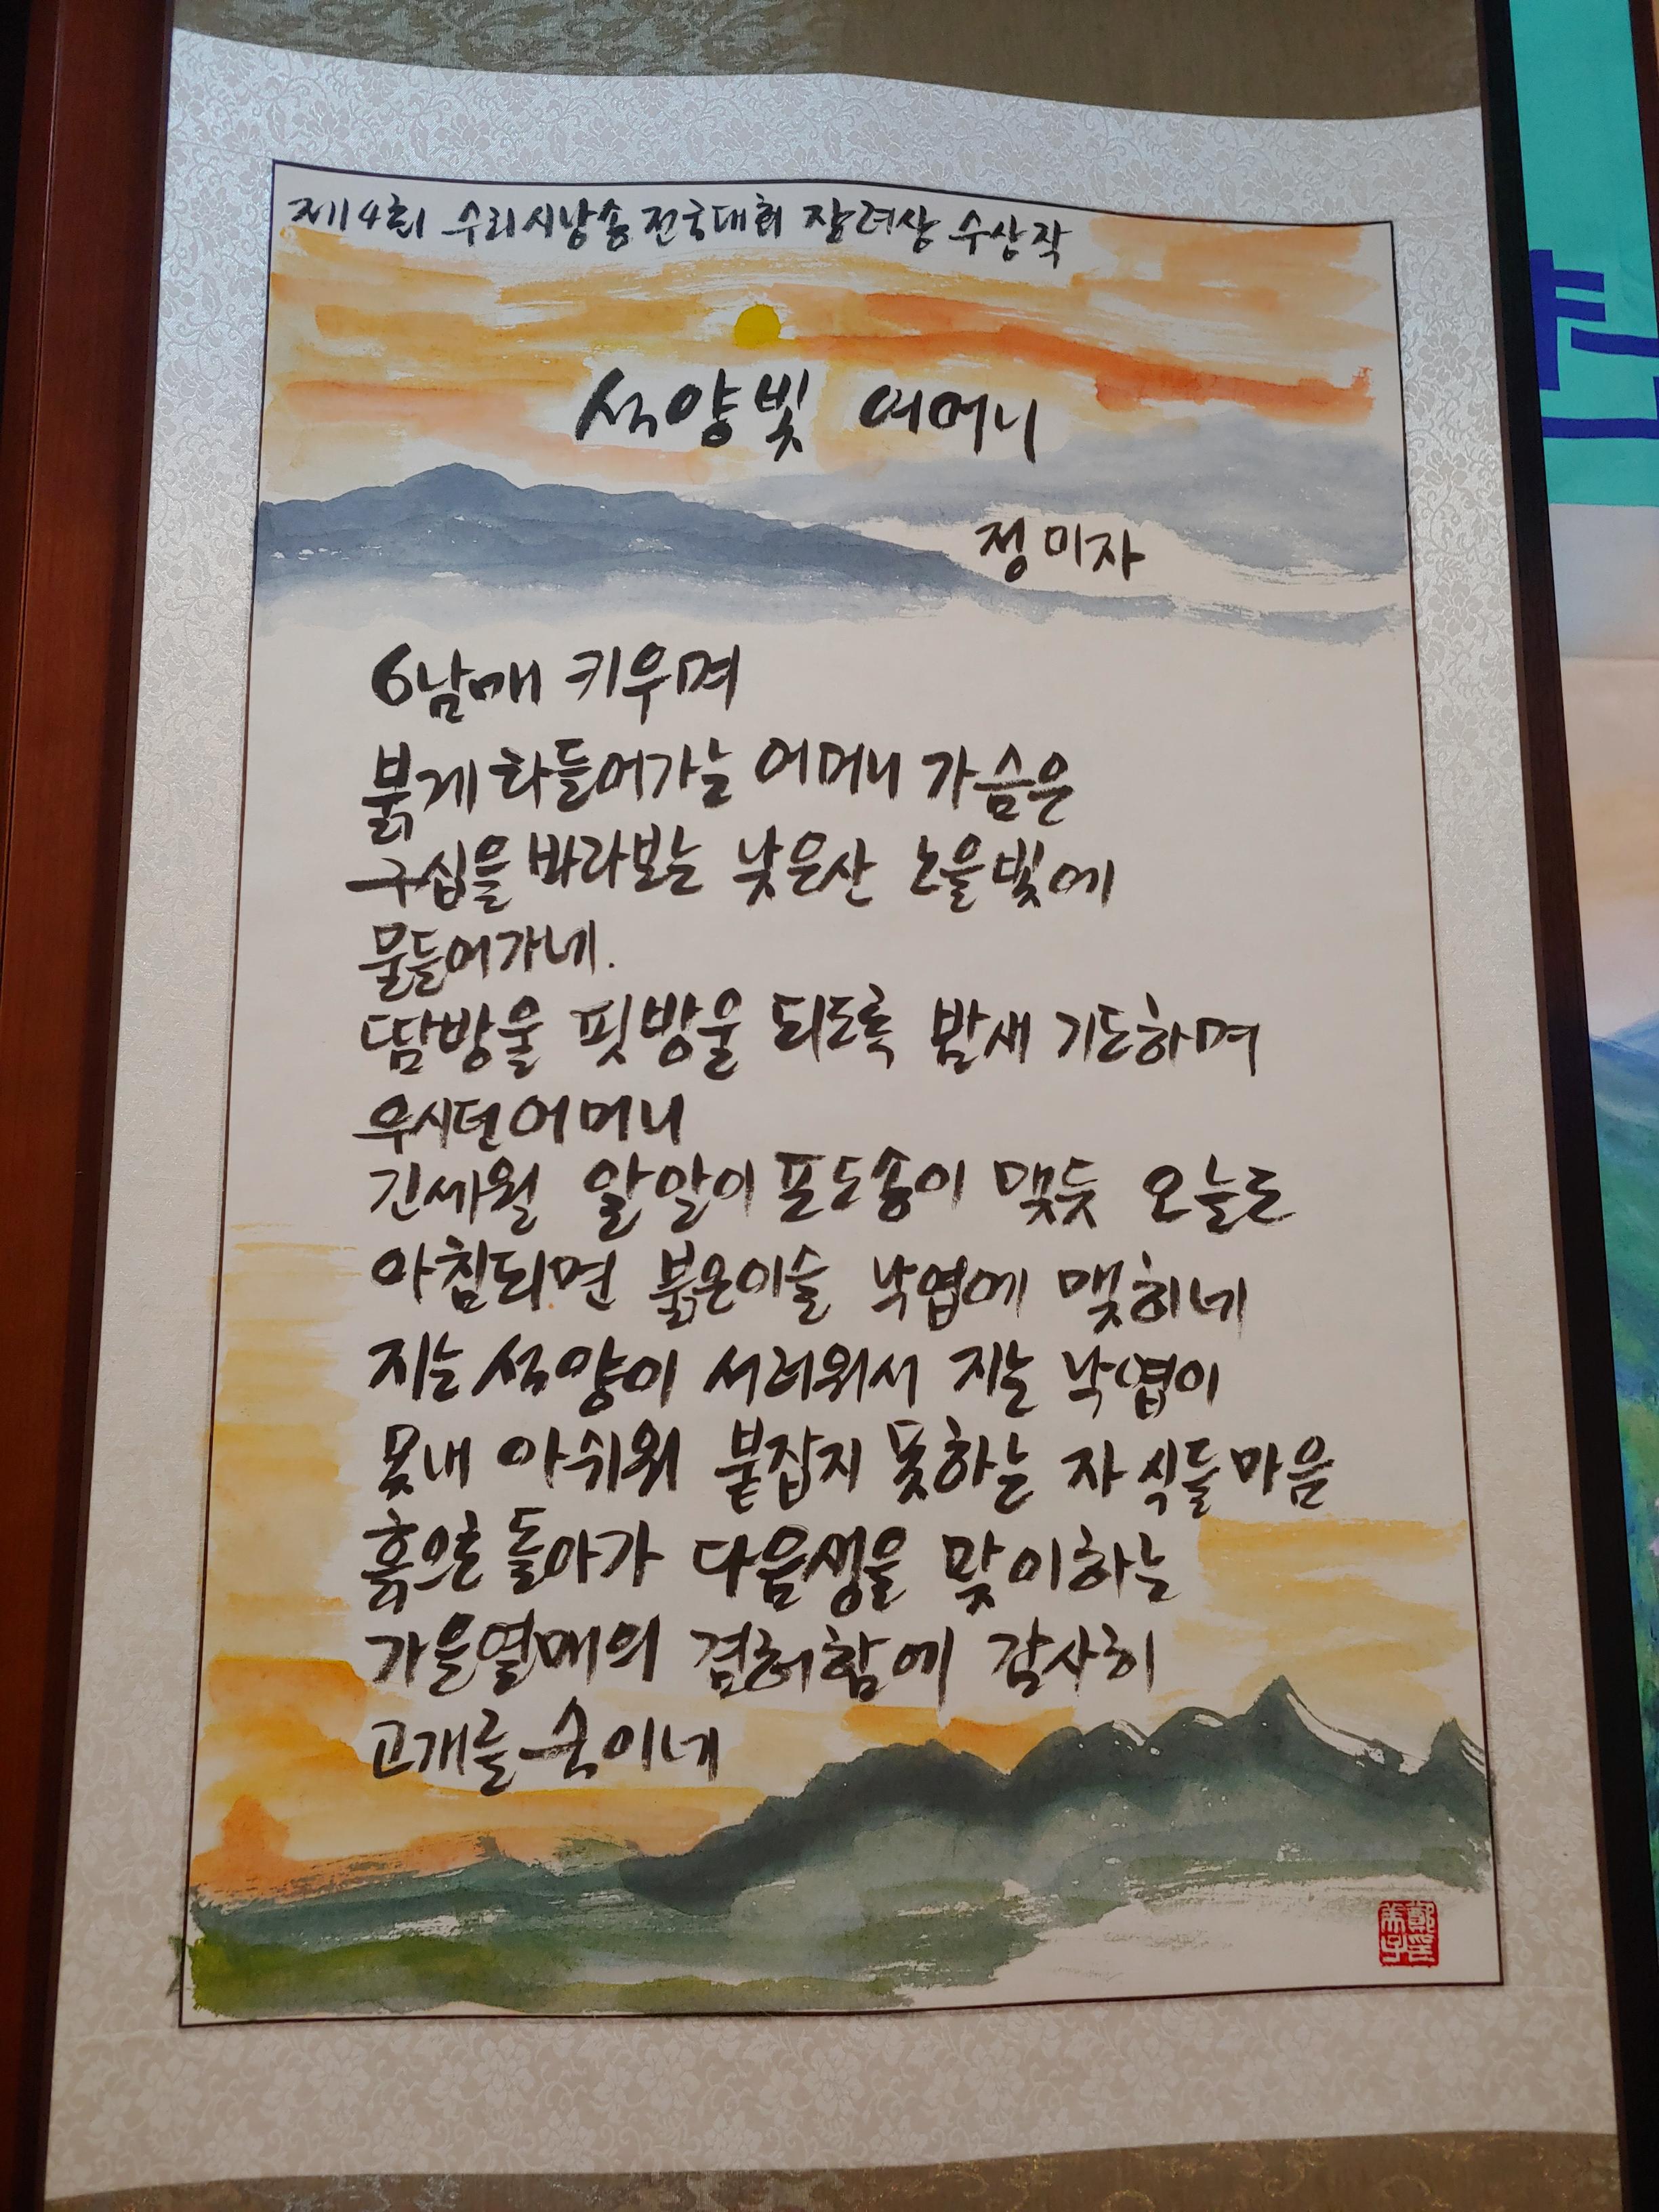 제14회 수리시낭송 전국대회 장려상 수상작
석양빛 어머니
정미자
6남매 키우며
붉게 타들어가는 어머니 가슴은
구십을 바라보는 낮은산 노을빛에
물들어가네.
땀방울 핏방울 되도록 밤새 기도하며
우시던 어머니
긴세월 알알이 포도송이 맺듯 오늘도
아침되면 붉은이슬 낙엽에 맺히네
지는 석양이 서러워서 지는 낙엽이
못내 아쉬워 붙잡지 못하는 자식들마음
흙으로 돌아가 다음생을 맞이하는
가을열매의 겸허함에 감사히
고개를 숙이네